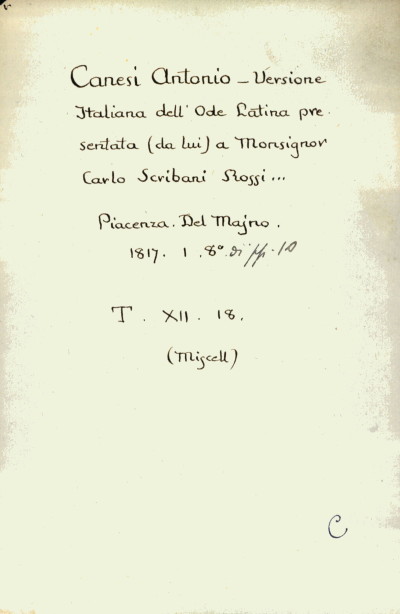 Canesi Antonio – Versione
Italiana dell' Ode Latina pre
sentata (da lui) a Monsignor
Carlo Scribani Rossi...
Piacenza. Del Majno.
1817. 1. 8° di pp. 10
T. XII. 18.
(Miscell)
C